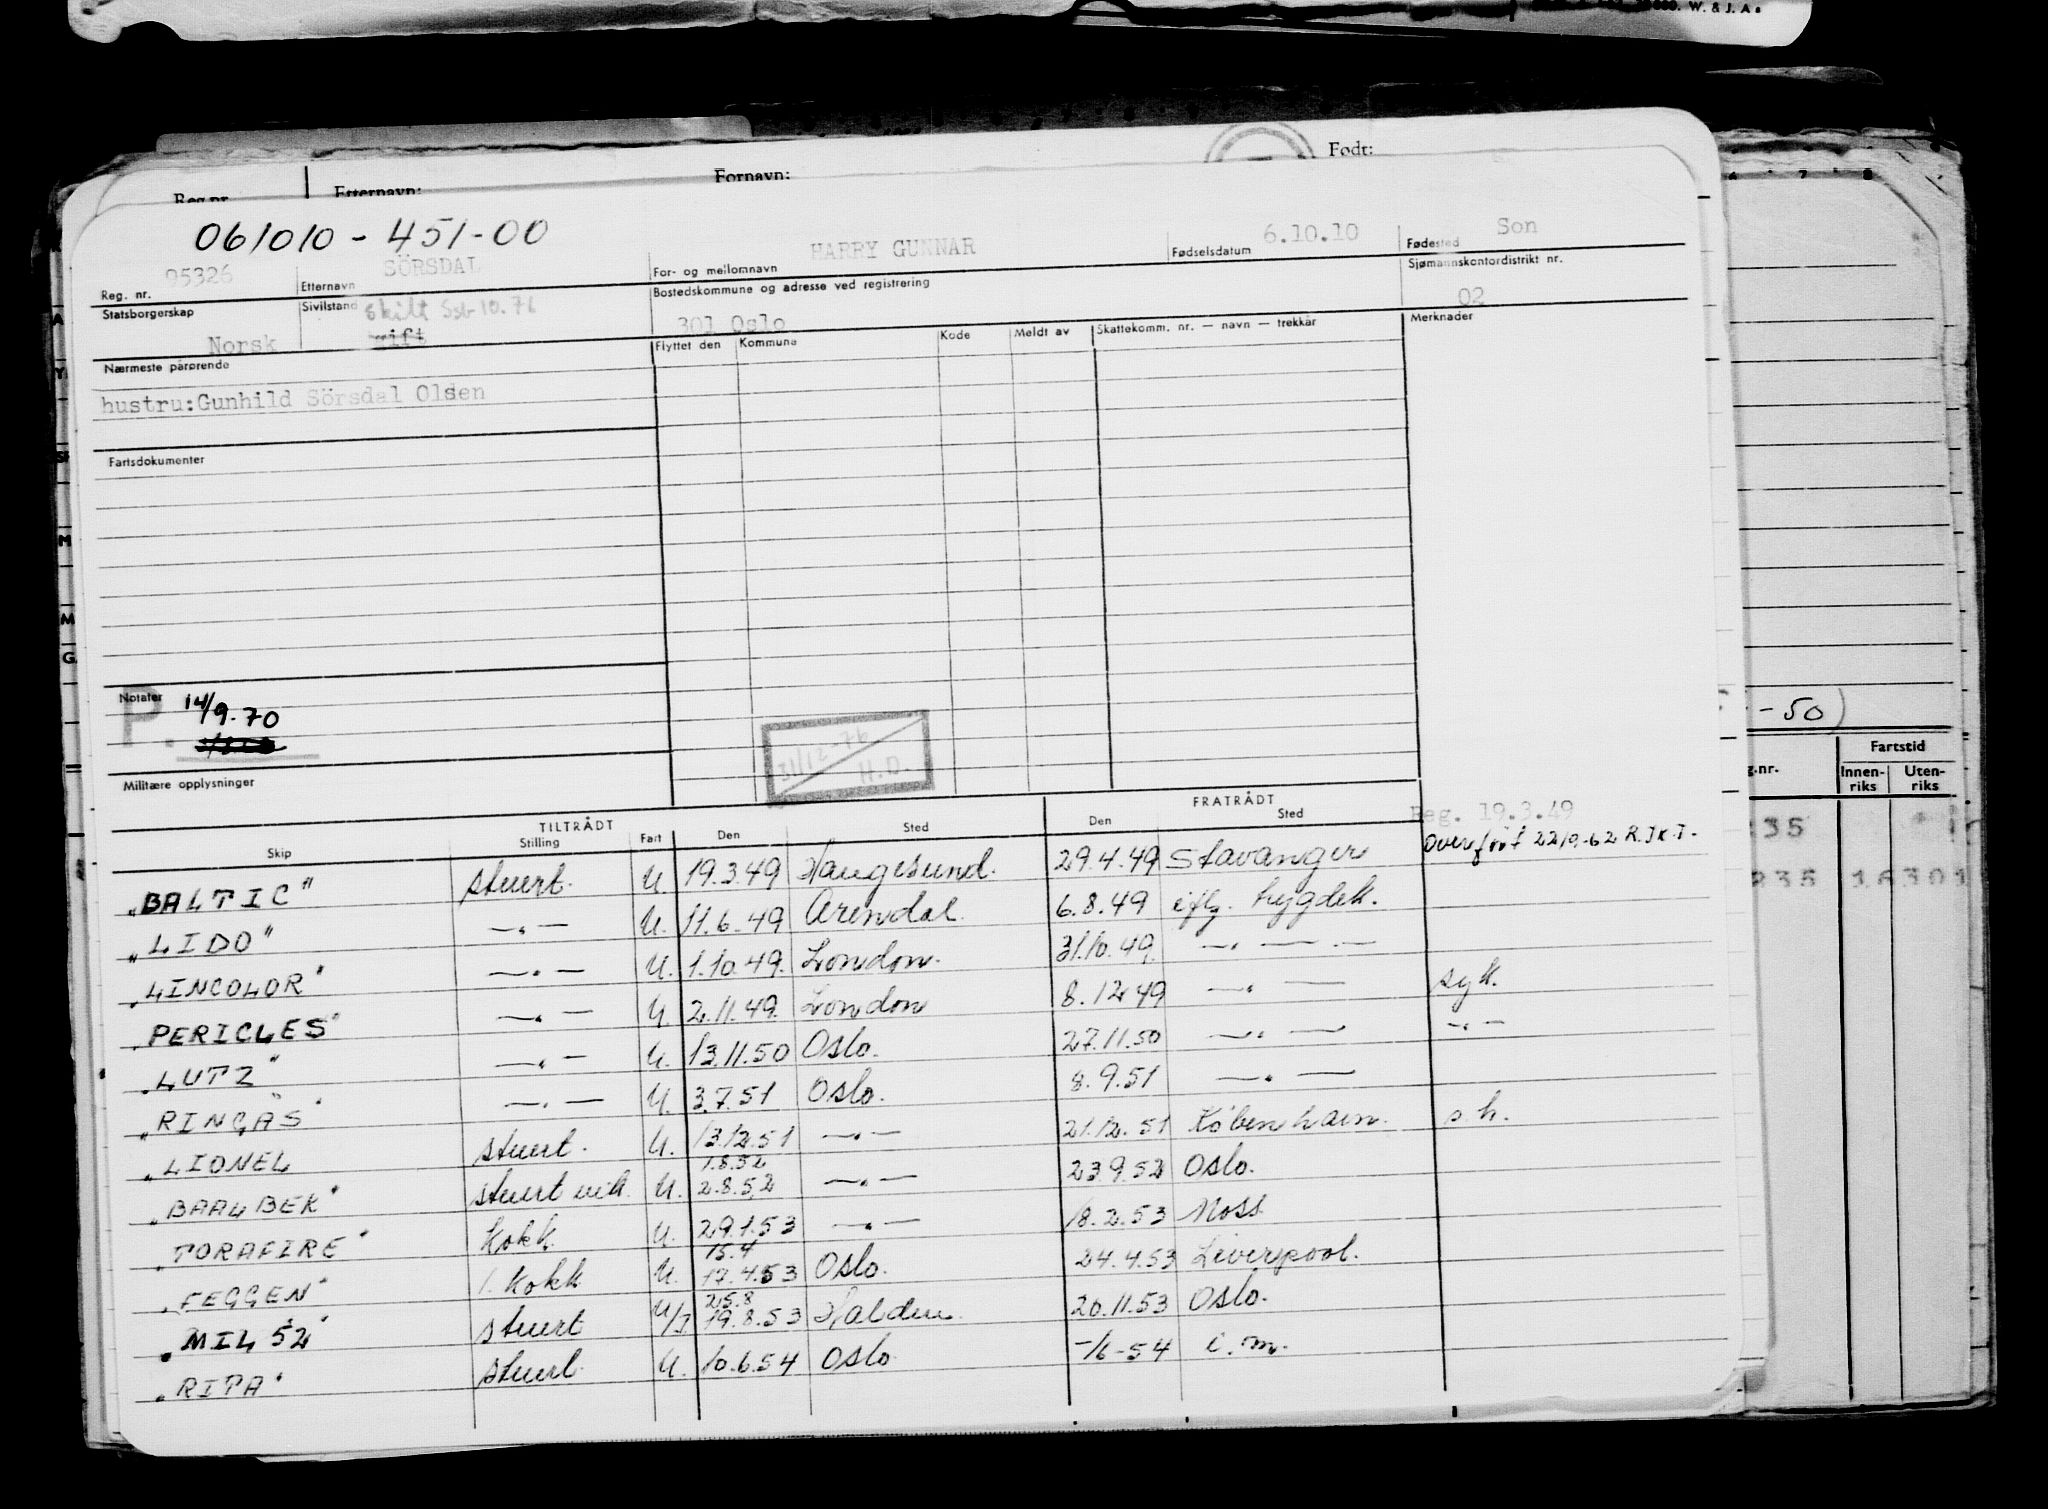 W. & J. A.
Født:
Fornavn:
Reg.nr. Etternavn:
6 7 8
061010 - 451-00
95326 SÖRSDAL HARRY GUNNAR 6.10.10 Son
Reg. nr. Etternavn For- og mellomnavn Fødselsdatum Fødested
Statsborgerskap Sivilstand Bostedskommune og adresse ved registrering Sjømannskontordistrikt nr.
skilt Ssb 10.76
Norsk gift 301 Oslo 02
Nærmeste pårørende Flyttet den Kommune Kode Meldt av Skattekomm. nr. — navn — trekkår Merknader
hustru:Gunhild Sörsdal Olsen
Fartsdokumenter
Notater
P. 14/9.70
31/12-76
H.D.
-50)
Militære opplysninger
Fartstid
g.nr. Innen-riks Uten-riks
TILTRÅDT FRATRÅDT Reg. 19.3.49
Skip Stilling Fart Den Sted Den Sted
Overført 22/9-62 R.T.K.T.
235
235 16301
"BALTIC" stuert. U. 19.3.49 Haugesund. 29.4.49 Stavanger
"LIDO" —"— U. 11.6.49 Arendal. 6.8.49 iflg. trygdek.
"LINCOLOR" —"— U. 1.10.49. London. 31.10.49. —"— —"—
"PERICLES" —"— U. 2.11.49. London 8.12.49 —"— syk.
"LUTZ" —"— U. 13.11.50 Oslo. 27.11.50 —"— —"—
"RINGÅS" —"— U. 3.7.51 Oslo. 8.9.51 —"—
"LIONEL" stuert. U. 13.12.51 —"— 21.12.51 København. s.h.
1.8.52
"BAALBEK" stuert vik. U. 2.8.52 —"— 23.9.52 Oslo.
"TORAFIRE" Kokk U. 29.1.53 —"— 18.2.53 Moss
15.4
"FEGGEN" 1. Kokk U. 17.4.53 Oslo. 24.4.53 Liverpool.
25.8
"MIL 52" stuert U/I 19.8.53 Halden. 20.11.53 Oslo.
"RITA" stuert U. 10.6.54 Oslo -/6-54 e.m.